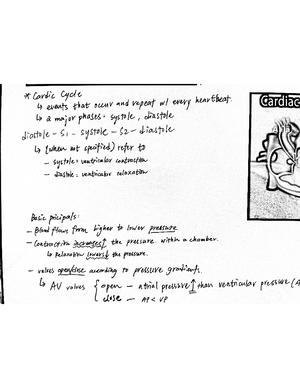 * Cardic Cycle
↳ events that occur and repeat w/ every heartbeat.
↳ 2 major phases: systole, diastole
diastole - S1 - systole - S2 - diastole
↳ (when not specified) refer to
- systole = ventricular contraction
- diastole = ventricular relaxation
Cardiac
Basic pricipals:
- Blood flows form higher to lower pressure
- Contraction increases↑ the pressure within a chamber.
↳ Relaxation lowers↓ the pressure.
- valves open/close according to pressure gradients.
↳ AV valves { open - atrial pressure ↑ than ventricular pressure (A
close - AP < VP